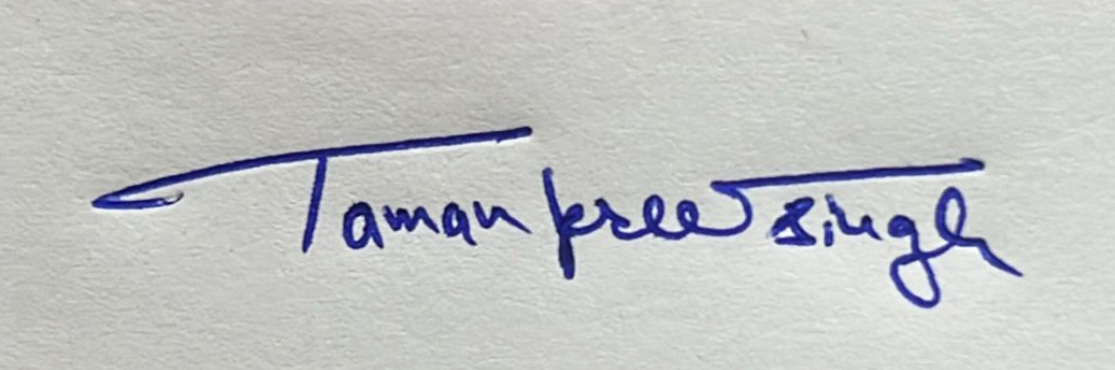 Tamanpreet Singh